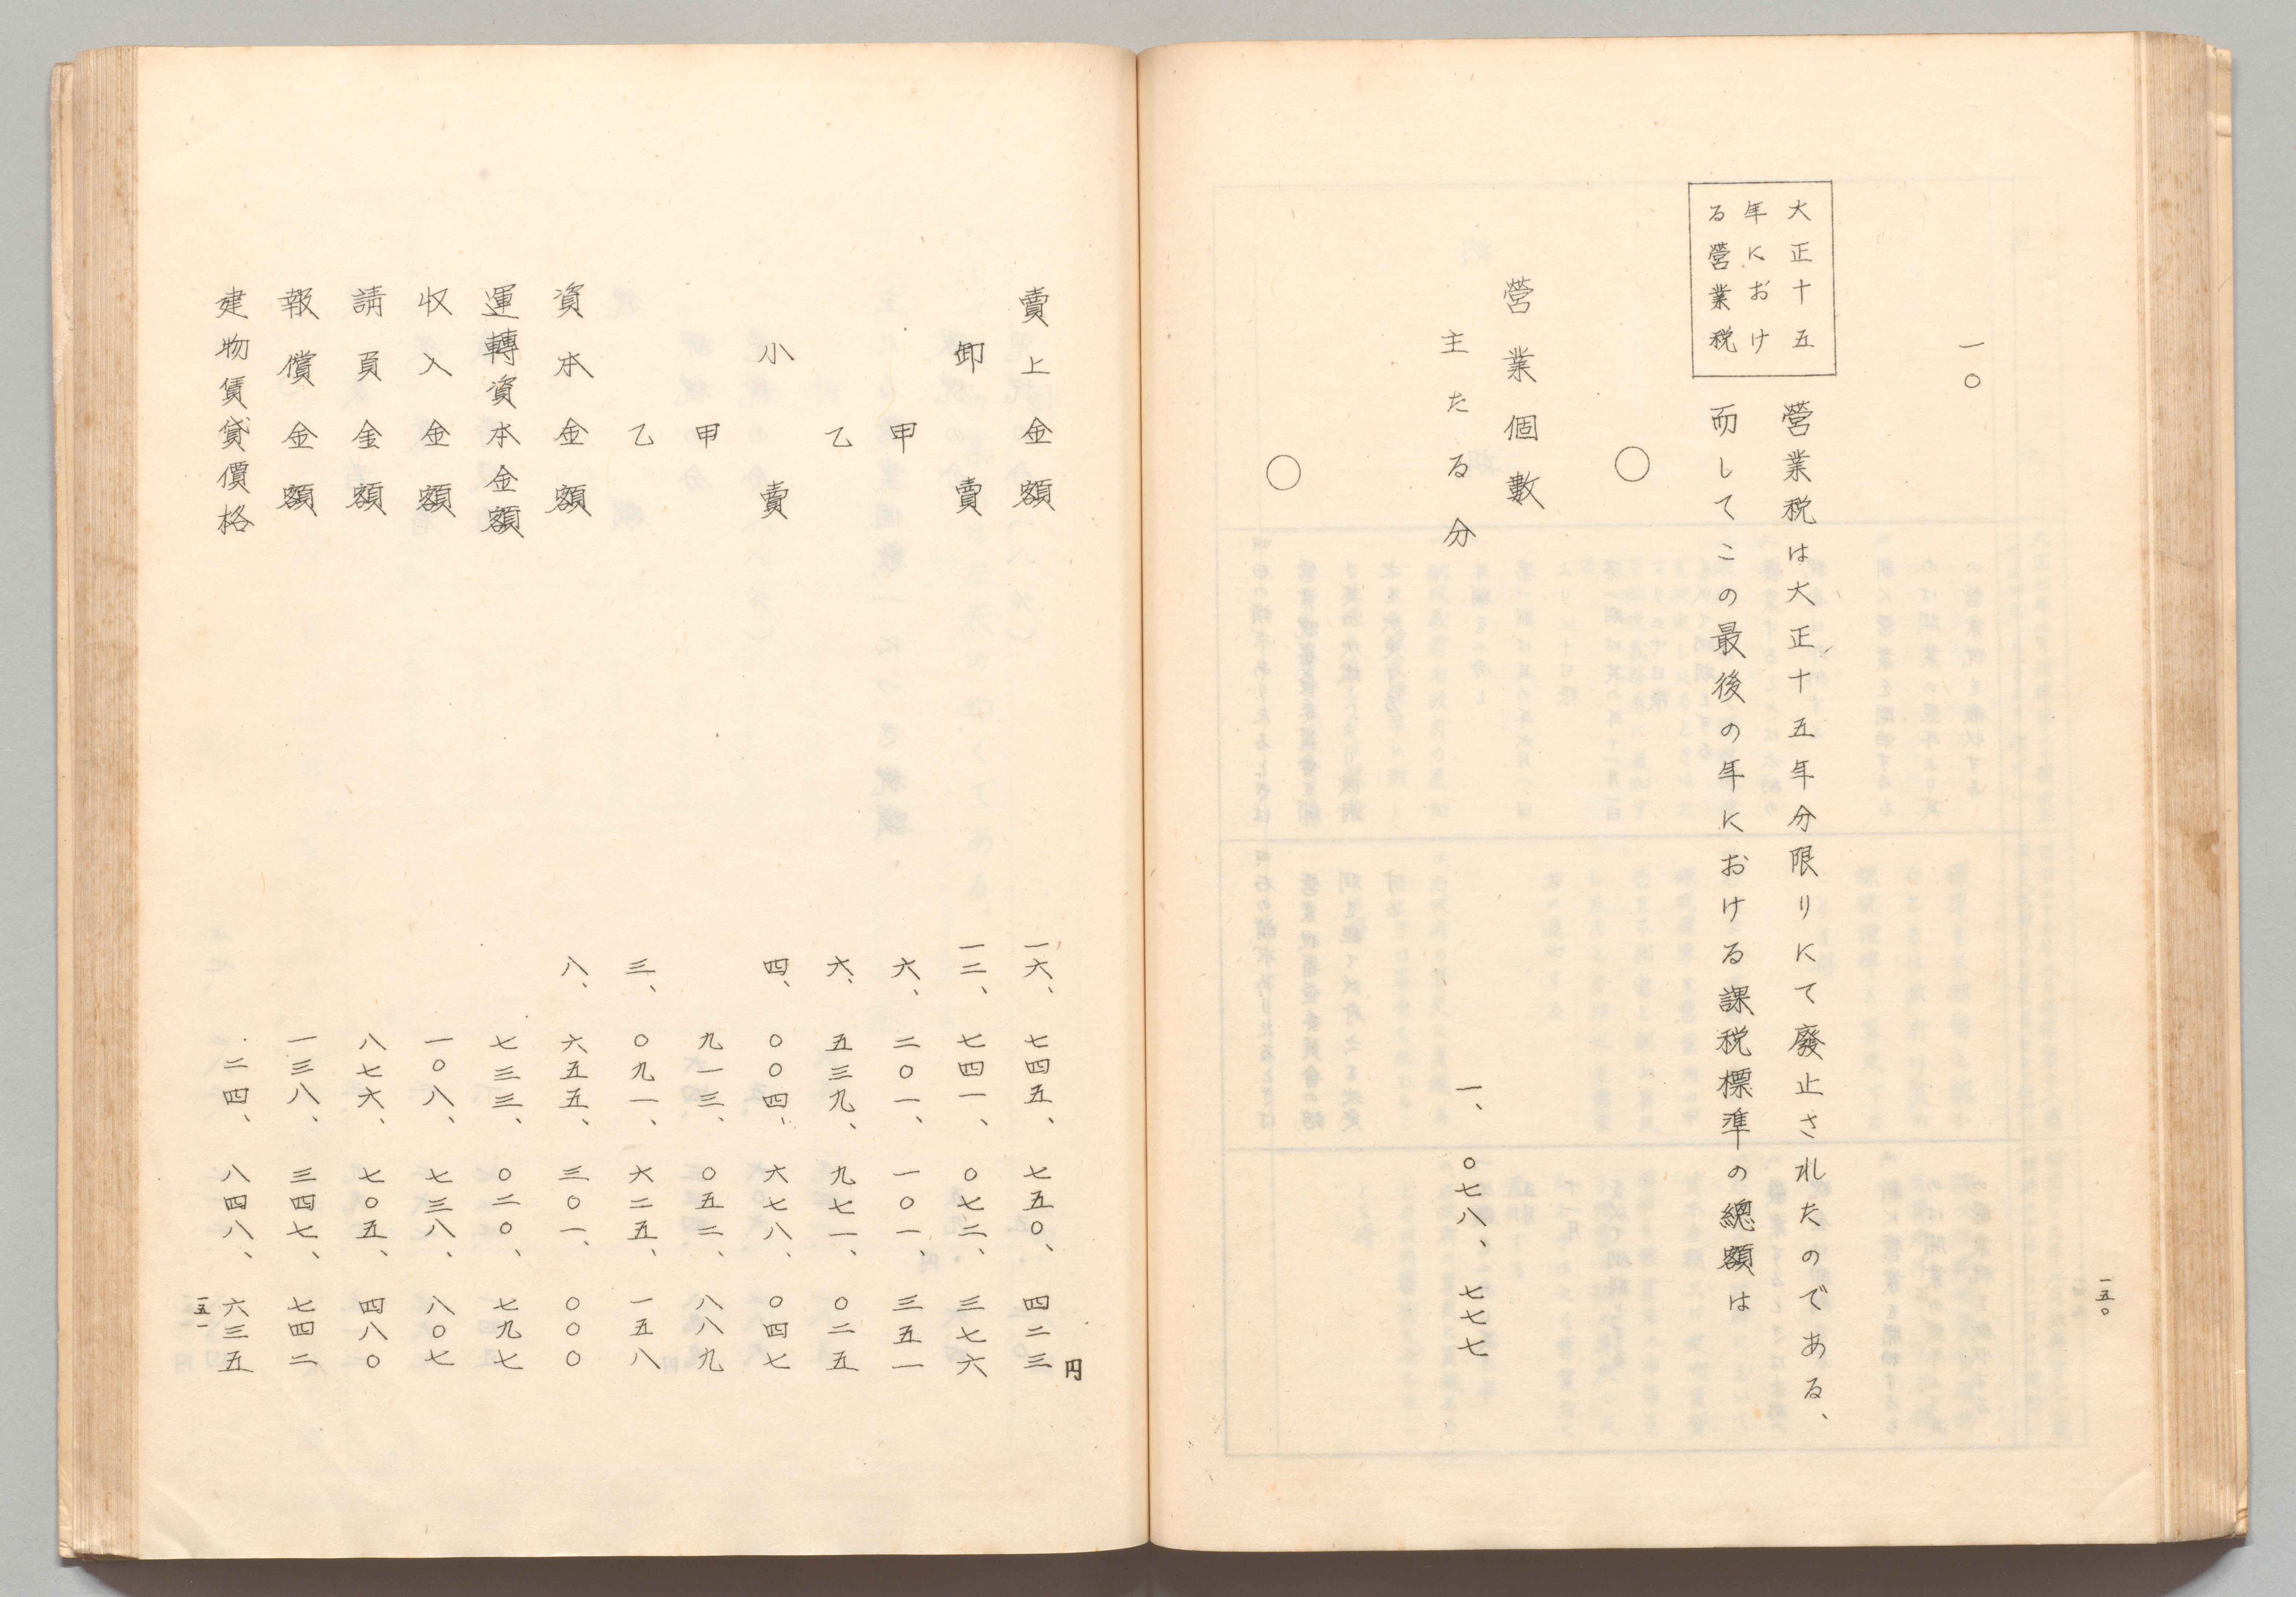 一〇
大正十五
年におけ
る營業税
營業税は大正十五年分限りにて廢止されたのである、
而してこの最後の年における課税標準の總額は
〇
營業個數
主たる分 一、〇七八、七七七
〇
一五〇
円
賣上金額 一六、七四五、七五〇、四二三
卸賣 一二、七四一、〇七二、三七六
甲 六、二〇一、一〇一、三五一
乙 六、五三九、九七一、〇二五
小賣 四、〇〇四、六七八、〇四七
甲 九一三、〇五二、八八九
乙 三、〇九一、六二五、一五八
資本金額 八、六五五、三〇一、〇〇〇
運轉資本金額 七三三、〇二〇、七九七
収入金額 一〇八、七三八、八〇七
請負金額 八七六、七〇五、四八〇
報償金額 一三八、三四七、七四二
建物賃貸價格 二四、八四八、六三五
一五一